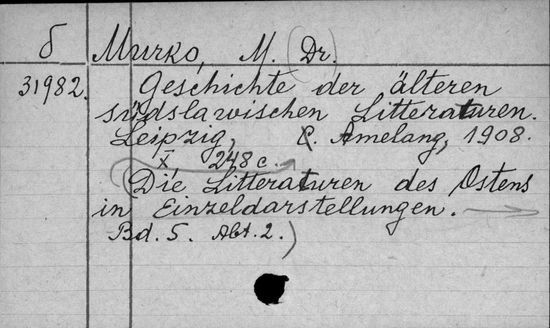 б Murko, M. (Dr.)
31982. Geschichte der älteren
südslawischen Litteraturen.
Leipzig, C. Amelang, 1908.
X, 248 c.
(Die Litteraturen des Ostens
in Einzeldarstellungen.
Bd. 5. Abt. 2.)